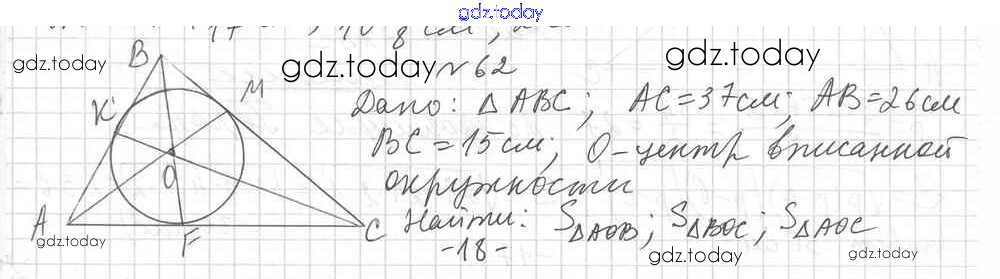 gdz.today
gdz.today
gdz.today
gdz.today
N 62
Дано: △ABC; AC=37см; AB=26см
BC=15см; O-центр вписанной
окружности
Найти: S△AOB; S△BOC; S△AOC
-18-
B
M
K
O
A
F
C
gdz.today
gdz.today
gdz.today